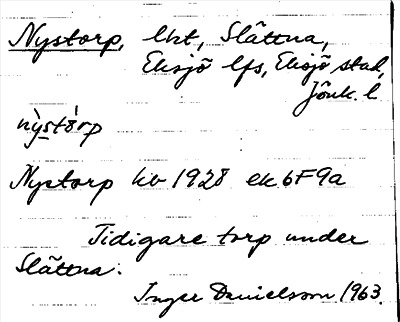 Nystorp, lht, Slättna,
Eksjö lfs, Eksjö stad,
Jönk. l
nỳstórp
Nystorp kv 1928 ek 6F9a
Tidigare torp under
Slättna.
Inger Danielsson 1963.